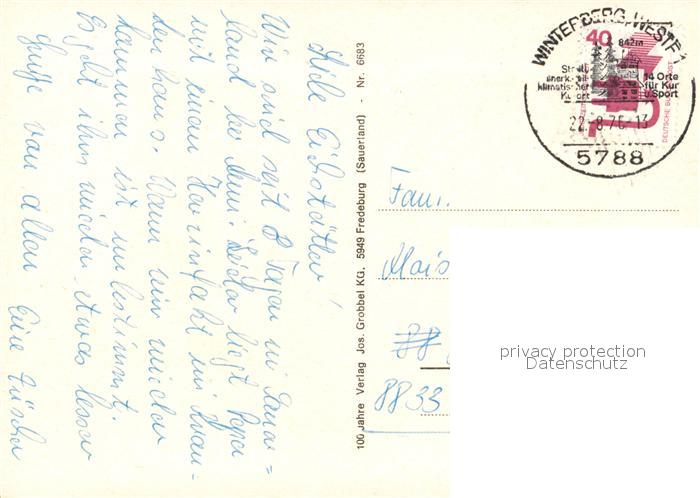 Hallo Eichstätter!
Wir sind seit 8 Tagen im Sauer=
land bei Leider liegt Papa
mit einem Herzinfarkt im Kran-
kenhaus. Wann wir wieder
kommen ist unbestimmt.
Es geht ihm wieder etwas besser
Grüße von allen Eure
100 Jahre Verlag Jos. Grobbel KG. 5949 Fredeburg (Sauerland) - Nr. 6683
WINTERBERG, WESTF 1
842m
14 Orte
für Kur
u. Sport
klimatischer
Kurort
22.-8.76.-13
5788
40
DEUTSCHE BUNDESPOST
Fam.
88
8833
privacy protection
Datenschutz